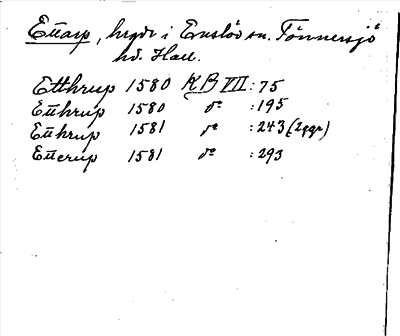 Ettarp, hrgdr i Enslöv sn. Tönnersjö
hd. Hall.
Etthrup 1580 KB VII : 75
Etthrup 1580 do : 195
Etthrup 1581 do : 243 (2 ggr)
Etterup 1581 do : 293